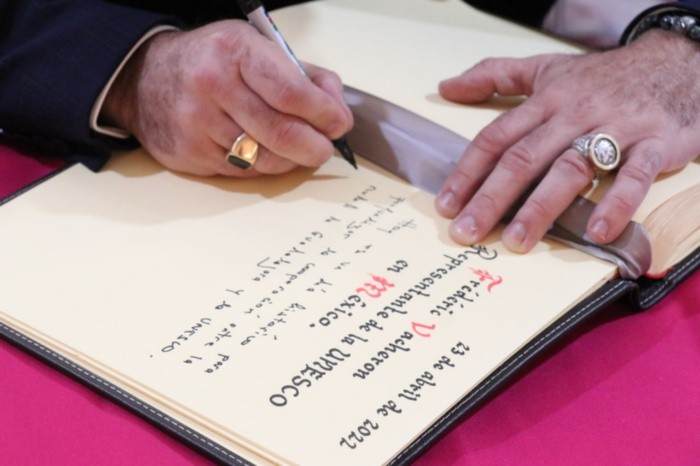 23 de abril de 2022
Frédéric Vacheron
Representante de la UNESCO
en Mexico.
Hoy es un día histórico para
profundizar la cooperación entre la
de Guadalajara y la UNESCO.